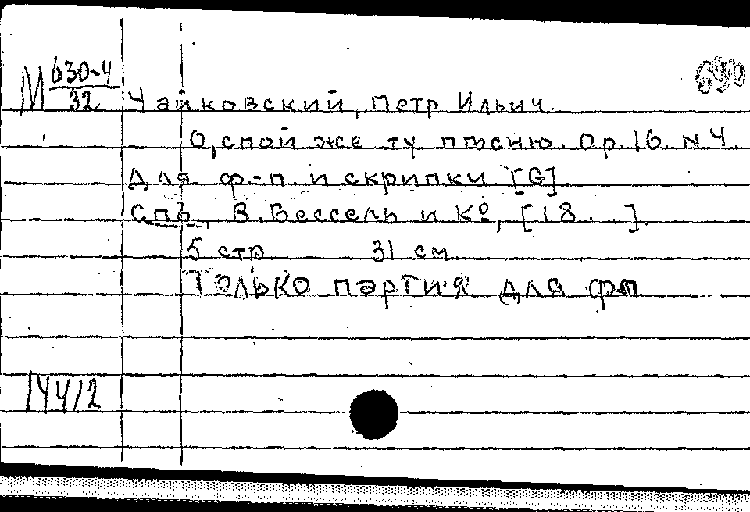 М 630-4
32
690
Чайковский, Петр Ильич.
О, спой же ту пѣсню. Op. 16. N 4.
Для ф.-п. и скрипки [G]
Спб, В. Бессель и Кº, [18 ].
5 стр 31 см.
Только партия для фп
14412